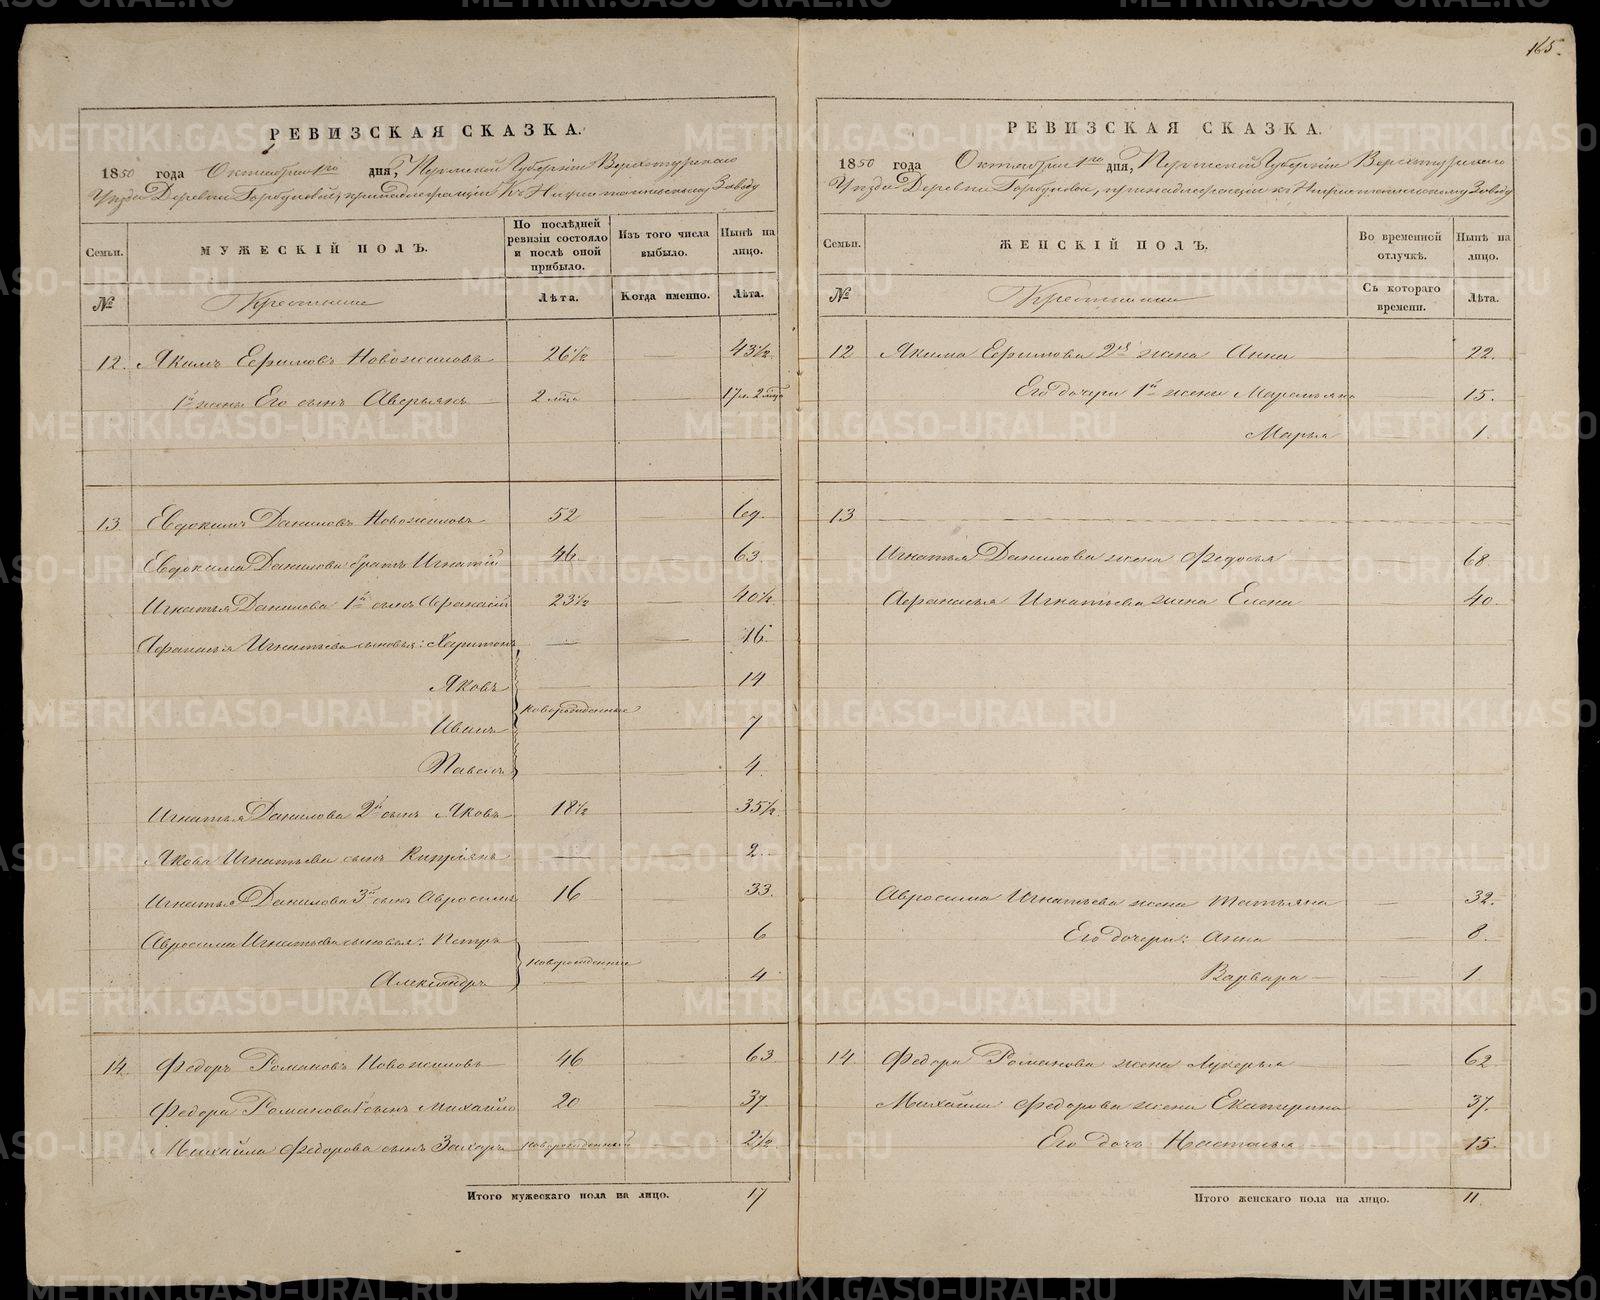 165.
РЕВИЗСКАЯ СКАЗКА.
1850 года Октября 1го дня, Пермской Губернiи Верхотурскаго
Уѣзда Деревни Горбуновой, принадлежащей къ Нижнетагильскому Заводу
Семьи. МУЖЕСКІЙ ПОЛЪ. По послѣдней ревизіи состояло и послѣ оной прибыло. Изъ того числа выбыло. Нынѣ на лицо.
№ Крестьяне Лѣта. Когда именно. Лѣта.
12. Якимъ Ефимовъ Новожиловъ 26½ 43½
1й жены Его сынъ Аверьянъ 2 мѣца 17 л. 2 мѣца
13 Евдокимъ Даниловъ Новожиловъ 52 69.
Евдокима Данилова братъ Игнатій 46 63.
Игнатья Данилова 1й сынъ Афанасій 23½ 40½
Афанасья Игнатьева сыновья: Харитонъ 16
Яковъ 14
новорожденные
Иванъ 7
Павелъ 4.
Игнатья Данилова 2й сынъ Яковъ 18½ 35½
Якова Игнатьева сынъ Кипріянъ 2.
Игнатья Данилова 3й сынъ Авросимъ 16 33.
Авросима Игнатьева сыновья: Петръ 6
новорожденные
Александръ 4
14. Федоръ Романовъ Новожиловъ 46 63
Федора Романова сынъ Михайло 20 37.
Михайла Федорова сынъ Захаръ новорожденный 2½
Итого мужескаго пола на лицо. 17
РЕВИЗСКАЯ СКАЗКА.
1850 года Октября 1го дня, Пермской Губернiи Верхотурскаго
Уѣзда Деревни Горбуновой, принадлежащей къ Нижнетагильскому Заводу
Семьи. ЖЕНСКІЙ ПОЛЪ. Во временной отлучкѣ. Нынѣ на лицо.
№ Крестьянки Съ котораго времени. Лѣта.
12 Якима Ефимова 2я жена Анна 22.
Его дочери 1й жены Маремьяна 15.
Марья 1.
13
Игнатья Данилова жена Федосья 68
Афанасья Игнатьева жена Елена 40.
Авросима Игнатьева жена Татьяна 32.
Его дочери: Анна 8.
Варвара 1
14 Федора Романова жена Лукерья 62
Михайла Федорова жена Екатерина 37.
Его дочь Настасья 15.
Итого женскаго пола на лицо. 11.
METRIKI.GASO-URAL.RU